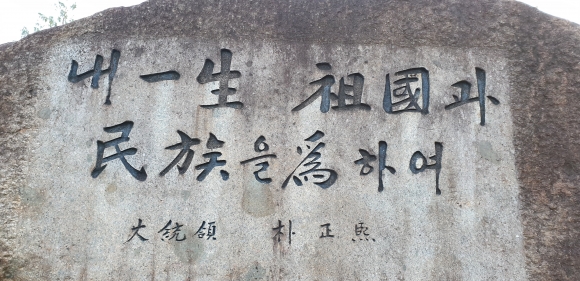 내 一生 祖國과
民族을 爲하여
大統領 朴正熙